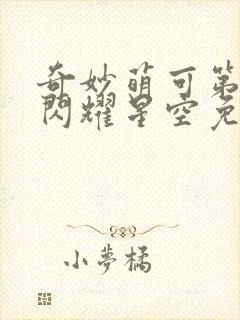 奇妙萌可第
閃耀星空免
小夢橘